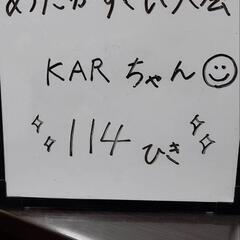 めだかすくい大会
KARちゃん
114ひき